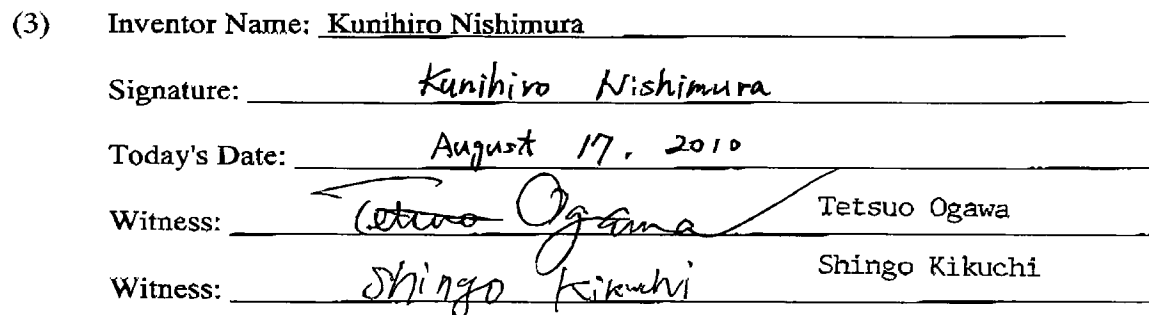 (3) Inventor Name: Kunihiro Nishimura
Signature: Kunihiro Nishimura
Today's Date: August 17, 2010
Witness: Tetsuo Ogawa Tetsuo Ogawa
Witness: Shingo Kikuchi Shingo Kikuchi